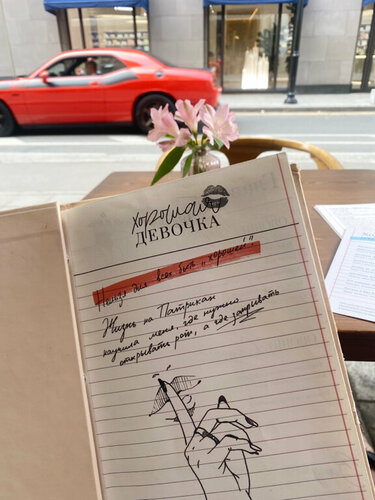 хорошая
ДЕВОЧКА
Нельзя для всех быть „хорошей"!
Жизнь на Патриках
научила меня, где нужно
открывать рот, а где закрывать